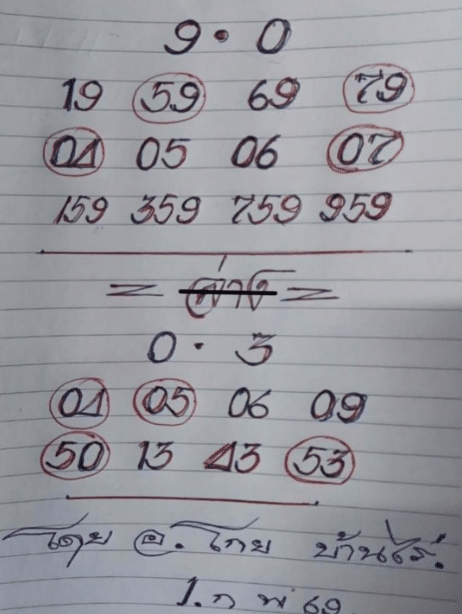 9 · 0
19 59 69 79
04 05 06 07
159 359 759 959
= ล่าง =
0 · 3
04 05 06 09
50 13 43 53
โดย อ. โกย บ้านไร่.
1. ก พ 69